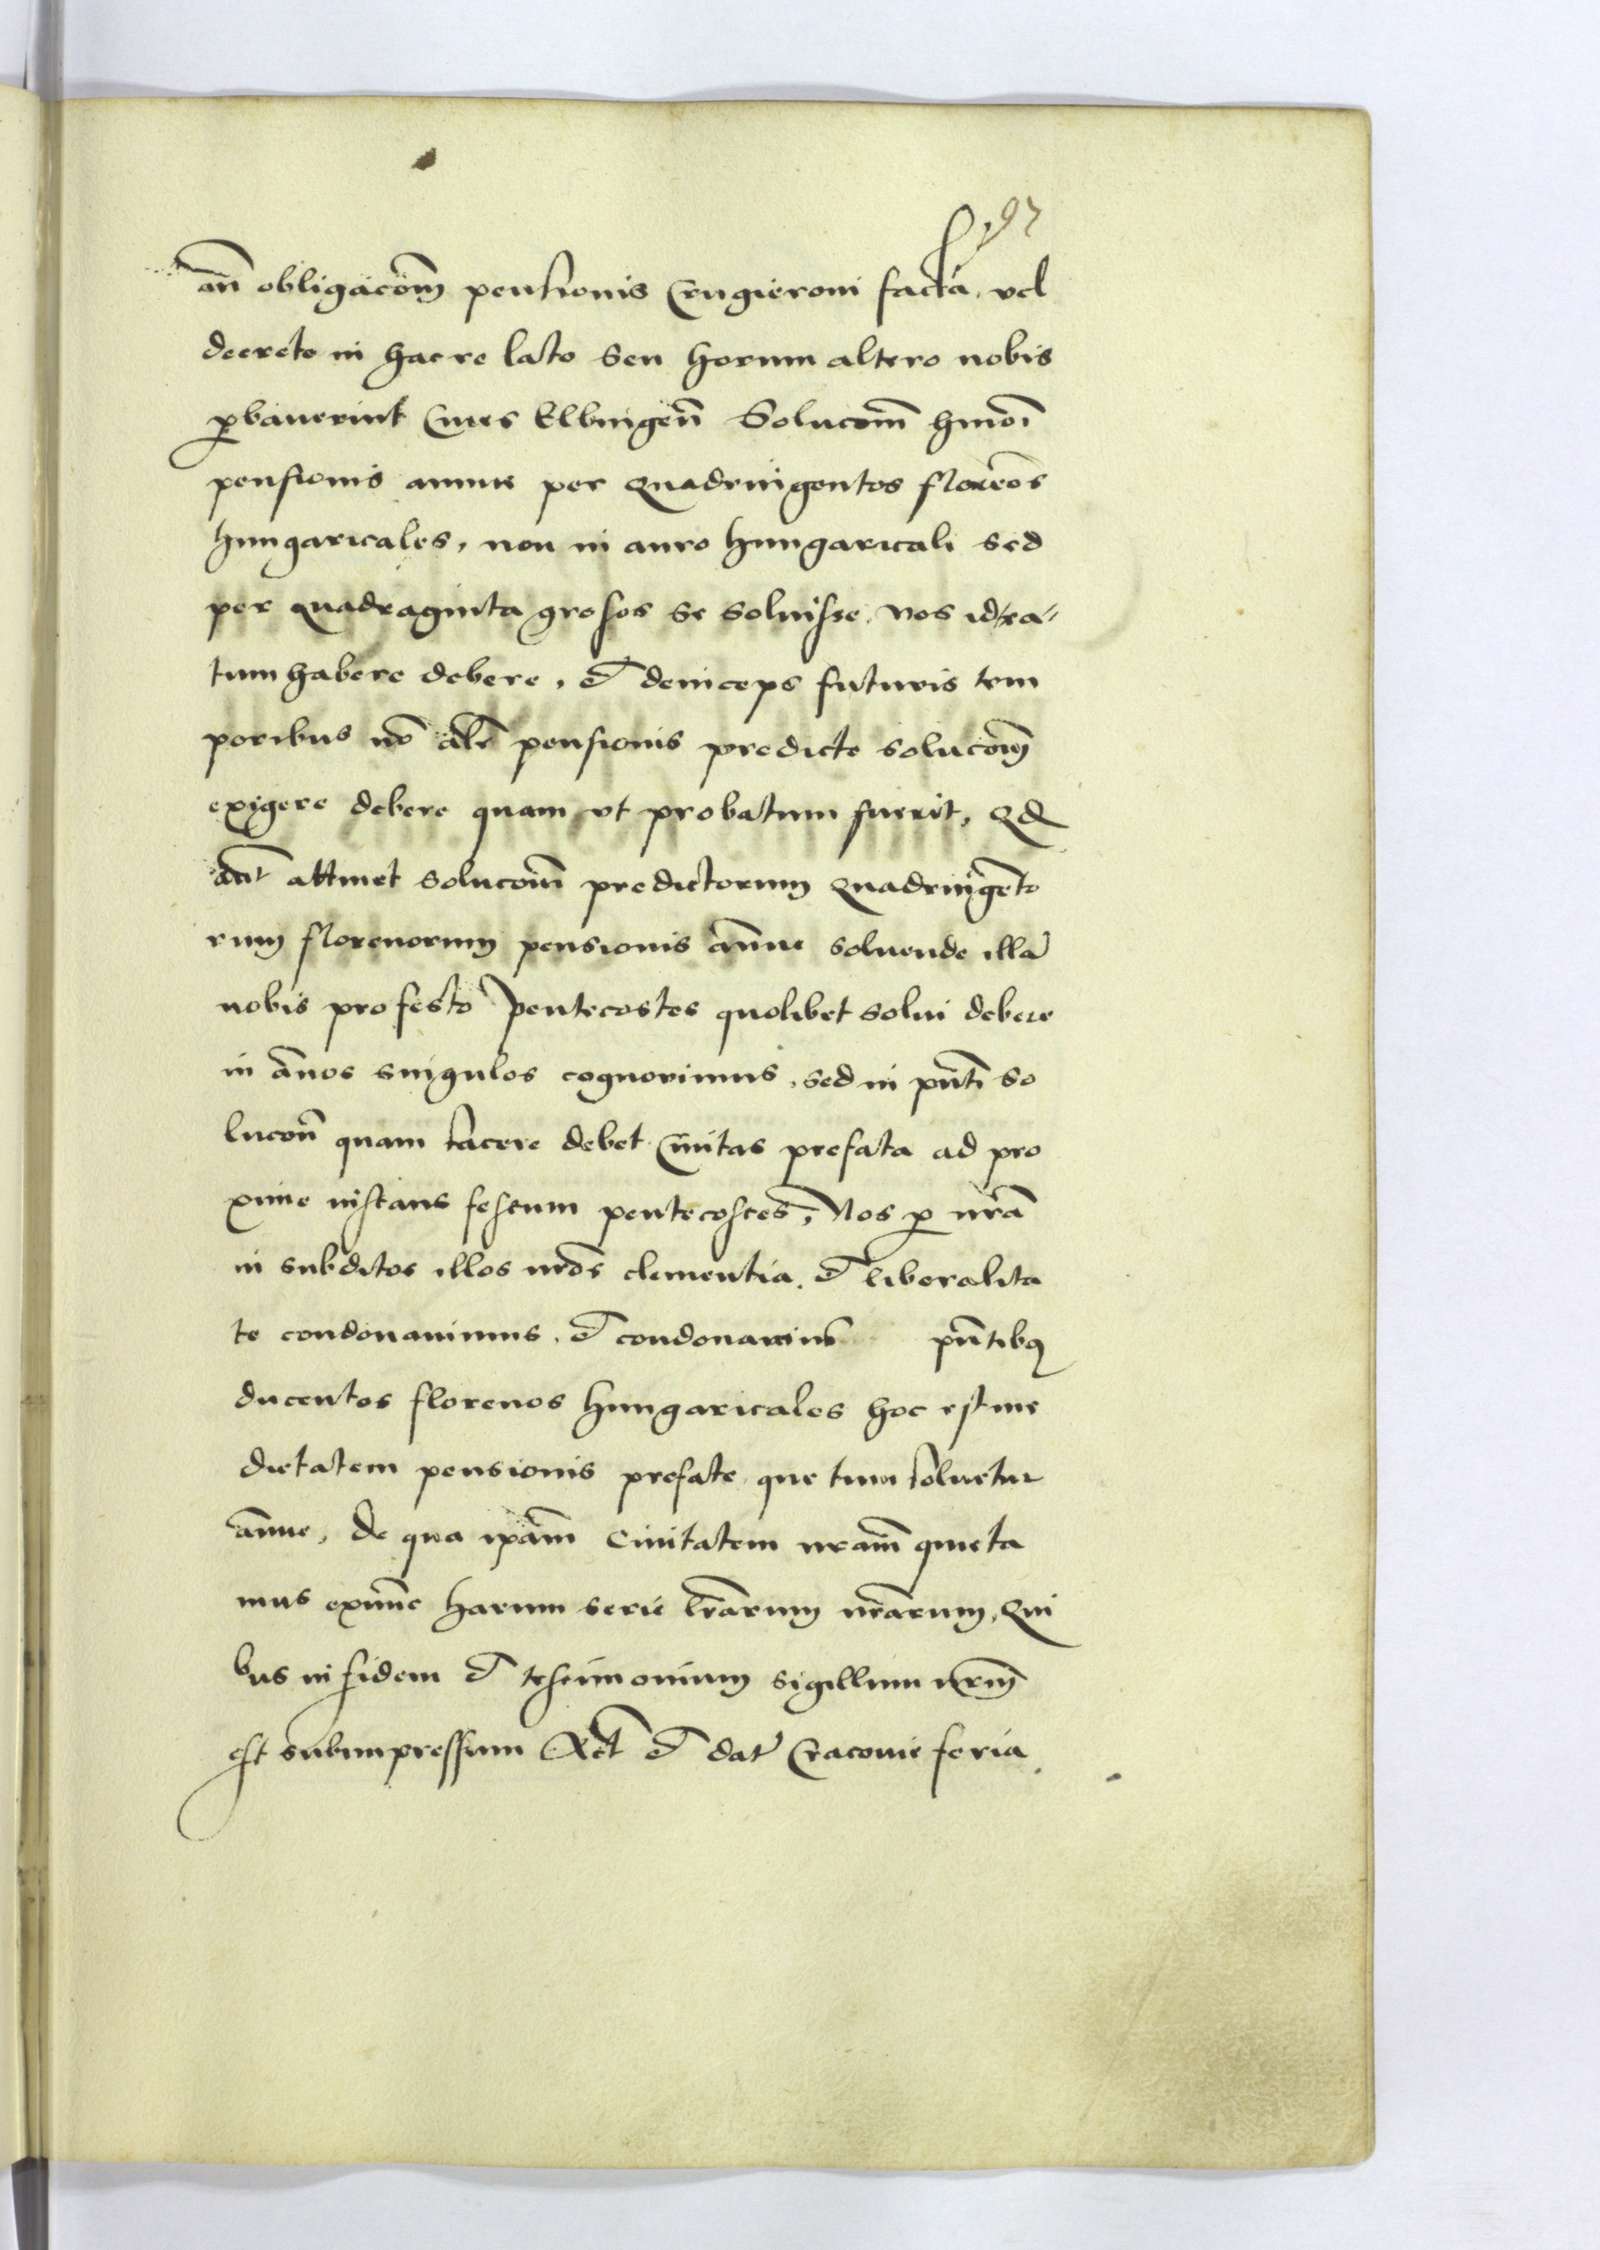 97
an̄ obligacōm pensionis Crugieroni facta. vel
decreto in hac re lato Seu horum altero nobis
ꝓbauerint Ciues Elbingen̄ Solucōm hmōi
pensionis annue per quadringentos florēos
hungaricales, non in auro hungaricali sed
per quadraginta grosos se soluisse. Nos id ra-
tum habere debere, et deinceps futuris tem
poribus nō alr̄ pensionis predicte solucōm
exigere debere quam vt probatum fuerit, Qd
aūt attinet solucōm predictorum quadringēto
rum florenorum pensionis ānue soluende illā
nobis pro festo Pentecostes quolibet solui debere
in ānos singulos cognouimus, sed in pn̄ti so
lucōn quam facere debet Ciuitas prefata ad pro
xime instans festum pentecostes, Nos ꝑ nrā
in subditos illos nrōs clementia. et liberalita
te condonauimus. et condonamus pn̄tibꝫ
ducentos florenos hungaricales hoc est me
dietatem pensionis prefate que tum soluetur
ānue, de qua ip̄am Ciuitatem nrām quieta
mus exnūc harum serie lrārum nrārum, Qui
bus in fidem et testimonium sigillum nrm̄
est subimpressum Act̄ et dat̄ Cracouie feria